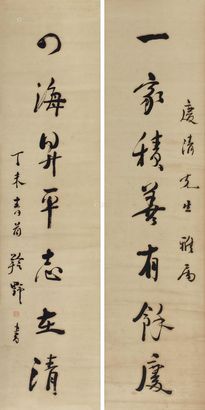 一家積善有餘慶
慶清先生雅屬
四海昇平志在清
丁未春 野書